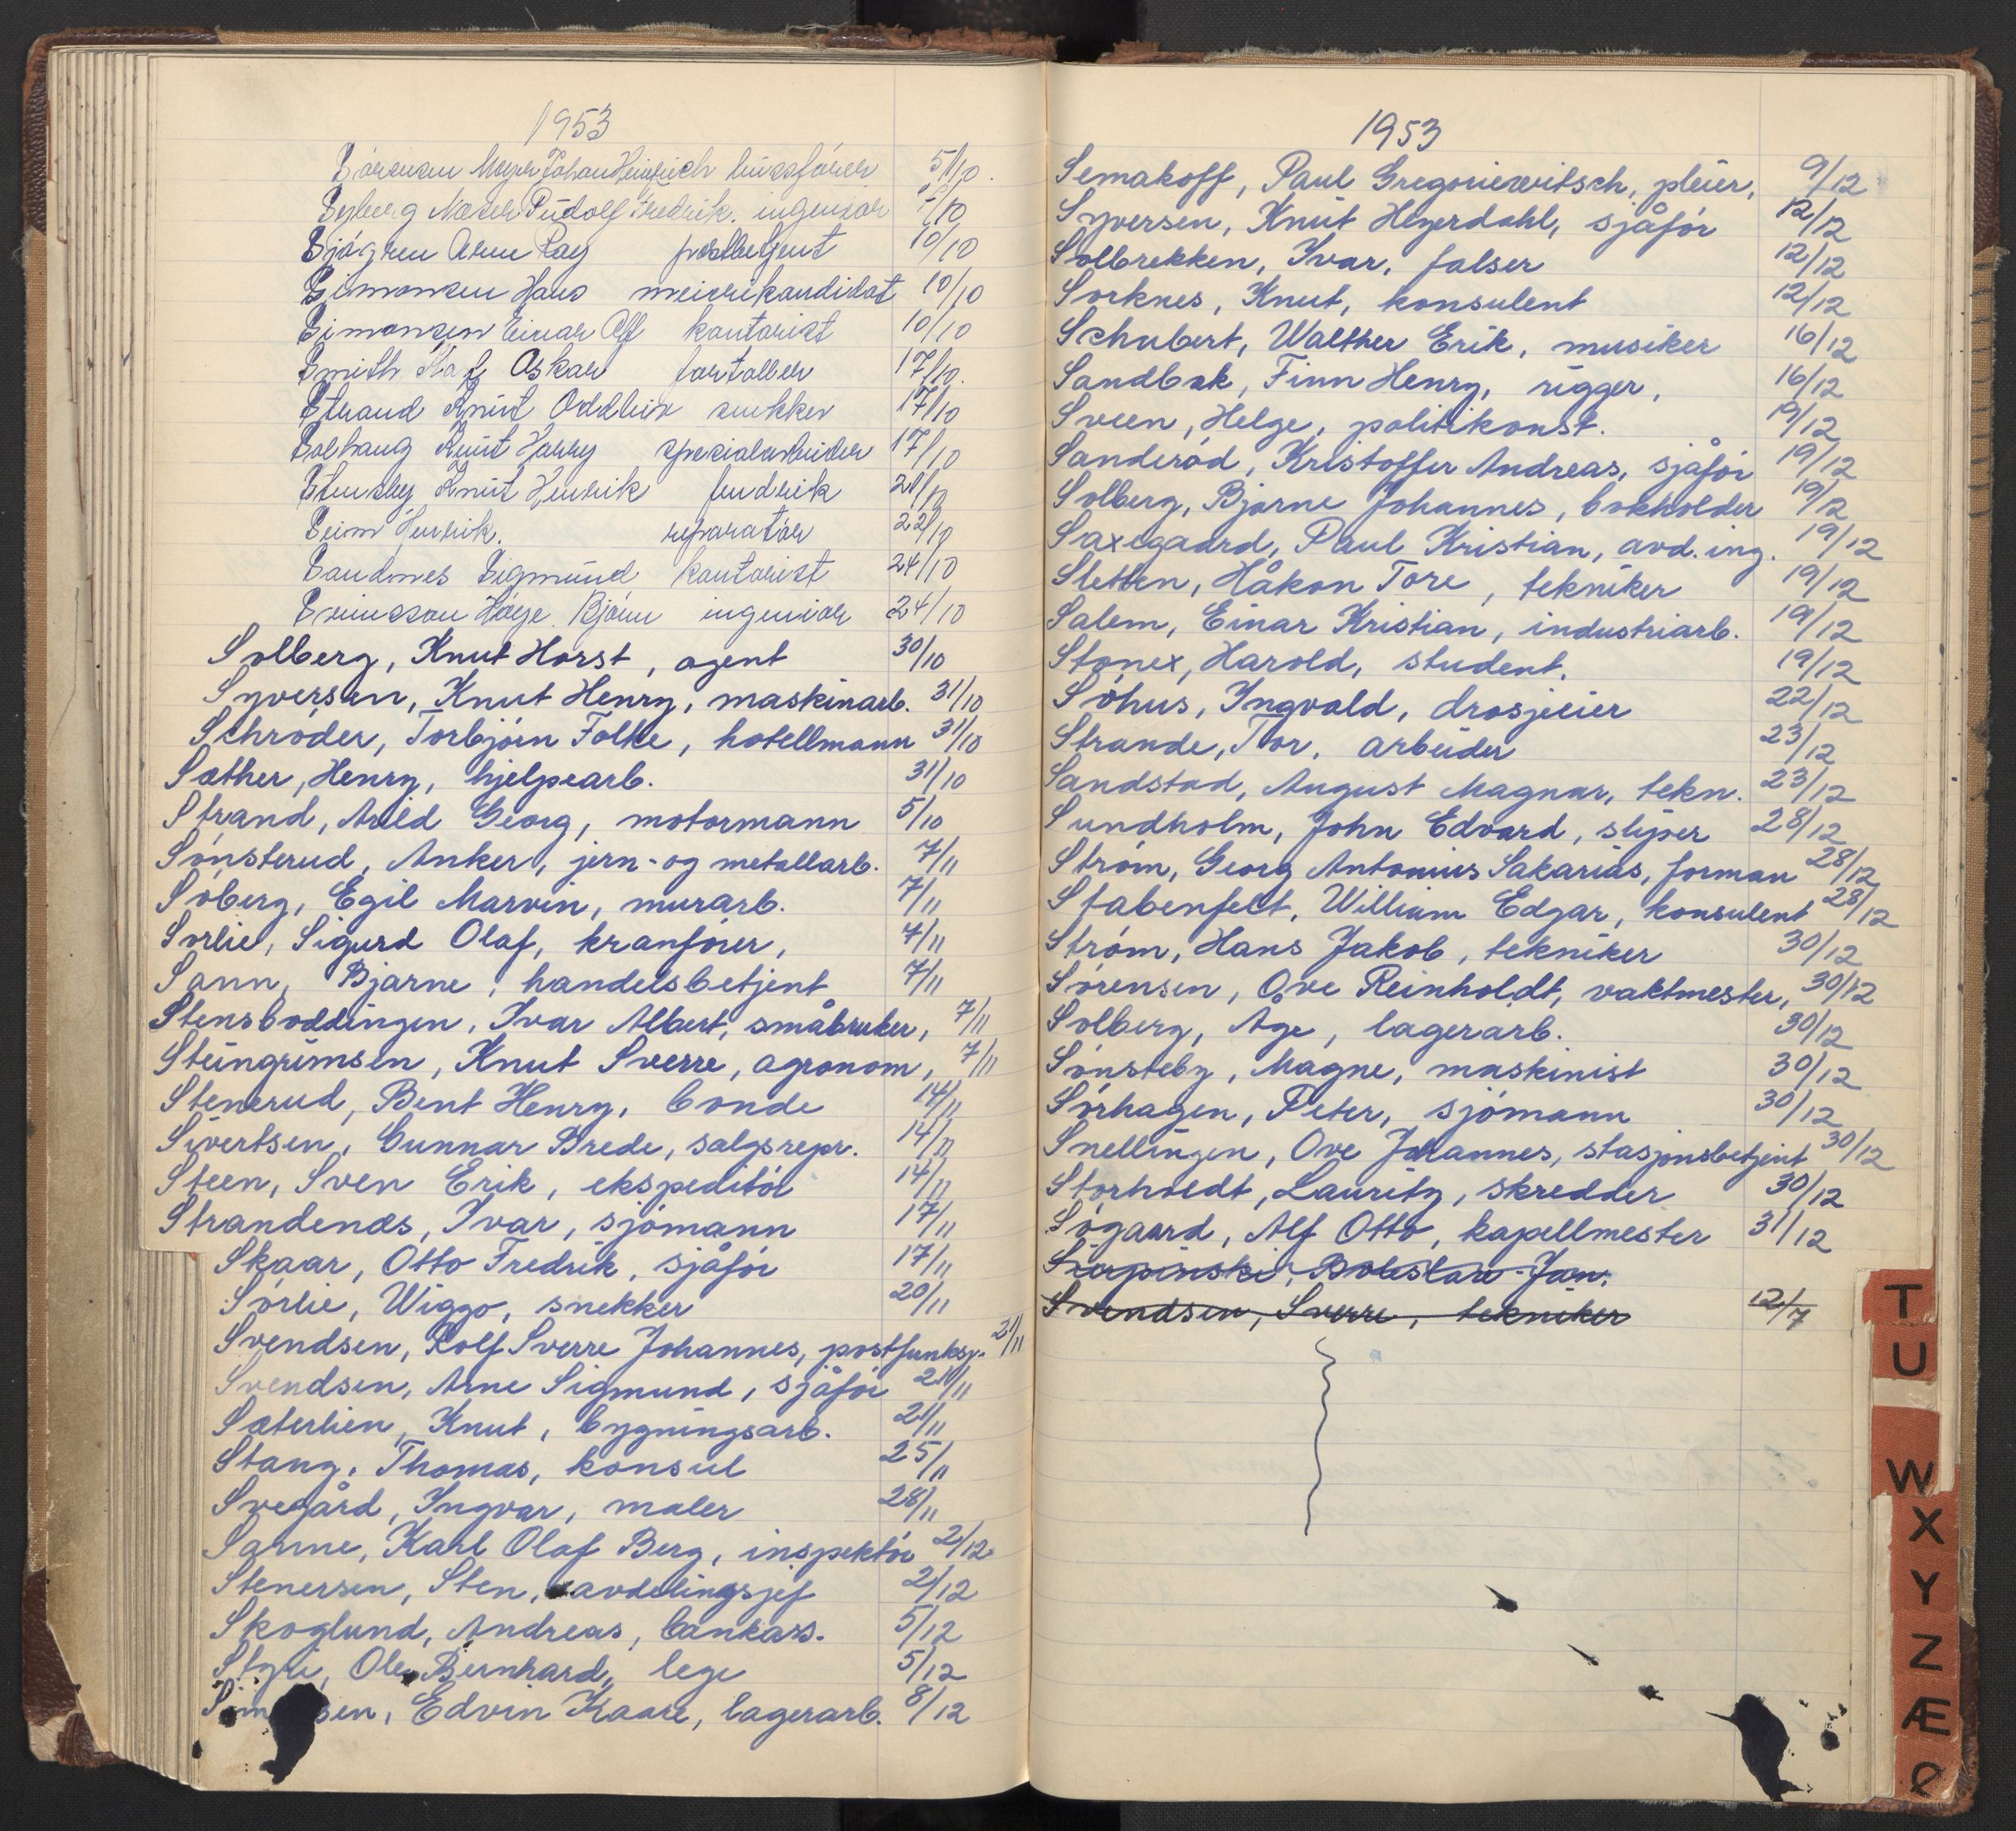 1953
Sörensen Meyer Johan Heinrich bussförer 5/10.
Syberg Rudolf Fredrik. ingeniör /10
Sjögren Arne Ray postbetjent 10/10
Simonsen Hans meierikandidat 10/10
Simonsen Einar Alf kontorist 10/10
Smith Oskar fortoller 17/10.
Strand Knut Oddleiv snekker 17/10
Solhaug Knut Harry spesialarbeider 17/10
Stensby Knut Henrik fendrik
Seim Henrik. reparatör 22/10
Sandnes Sigmund kontorist 24/10
Björn ingeniör 24/10
Solberg, Knut Horst, agent 30/10
Syversen, Knut Henry, maskinarb. 31/10
Schröder, Torbjörn Folke, hotellmann 31/10
Sæther, Henry, hjelpearb. 31/10
Strand, Arild Georg, motormann 5/10
Sönsterud, Anker, jern-og metallarb. 7/11
Söberg, Egil Marvin, murarb. 7/11
Sorlie, Sigurd Olaf, kranförer, 7/11
Sann, Bjarne, handelsbetjent 7/11
Stensboddingen, Ivar Albert, småbruker, 7/11
Steingrimsen, Knut Sverre, agronom, 7/11
Stenerud, Bent Henry, bonde 14/11
Sivertsen, Gunnar Brede, salgsrepr. 14/11
Steen, Sven Erik, ekspeditör 14/11
Strandenæs, Ivar, sjömann 17/11
Skaar, Otto Fredrik, sjåför 17/11
Sörlie, Wiggo, snekker 20/11
Svendsen, Rolf Sverre Johannes, postfunksj. 21/11
Svendsen, Arne Sigmund, sjåför 21/11
Sæterlien, Knut, bygningsarb. 21/11
Stang, Thomas, konsul 25/11
Svegård, Ingvar, maler 28/11
Sanne, Karl Olaf Berg, inspektör 2/12
Stenersen, Sten, avdelingsjef 2/12
Skoglund, Andreas, bankass. 5/12
Styri, Ole Bernhard, lege 5/12
Edvin Kaare, lagerarb. 8/12
1953
Semakoff, Paul Gregoriewitsch, pleier, 9/12
Syversen, Knut Heyerdahl, sjåför 12/12
Solbrekken, Ivar, falser 12/12
Sorknes, Knut, konsulent 12/12
Schubert, Walther Erik, musiker 16/12
Sandbak, Finn Henry, rigger, 16/12
Sveen, Helge, politikonst. 19/12
Sanderöd, Kristoffer Andreas, sjåför 19/12
Solberg, Bjarne Johannes, bokholder 19/12
Saxegaard, Paul Kristian, avd. ing. 19/12
Sletten, Håkon Tore, tekniker 19/12
Salem, Einar Kristian, industriarb. 19/12
Stonex, Harold, student, 19/12
Söhus, Ingvald, drosjeeier 22/12
Strande, Tor, arbeider 23/12
Sandstad, August Magnar, tekn. 23/12
Sundholm, John Edvard, sliper 28/12
Ström, Georg Antonius Sakarias, forman 28/12
Stabenfelt, William Edgar, konsulent 28/12
Ström, Hans Jakob, tekniker 30/12
Sörensen, Ove Reinholdt, vaktmester, 30/12
Solberg, Åge, lagerarb. 30/12
Sönsteby, Magne, maskinist 30/12
Sörhagen, Peter, sjömann 30/12
Snellingen, Ove Johannes, stasjonsbetjent 30/12
Storholdt, Lauritz, skredder 30/12
Sögaard, Alf Otto, kapellmester 31/12
Sierpinski, Boleslaw Jan.
Svendsen, Sverre, tekniker 12/7
T
U
W
X
Y
Z
Æ
Ø